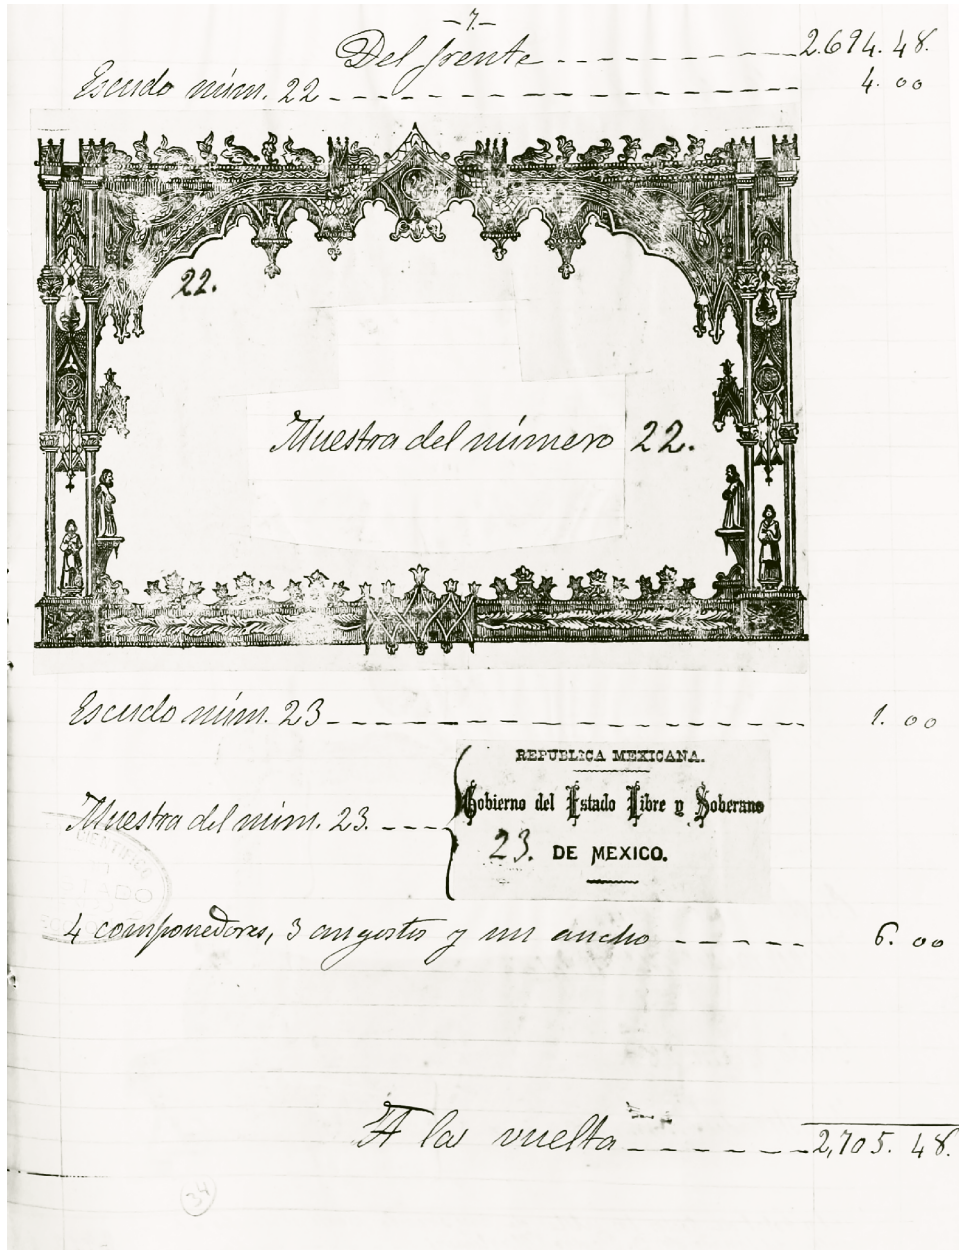 -7.-
Del frente ---------- 2.694.48.
Escudo núm. 22 ---------- 4.00
22.
Muestra del número 22.
Escudo núm. 23 ---------- 1.00
REPUBLICA MEXICANA.
Gobierno del Estado Libre y Soberano
Muestra del núm. 23. ---
23. DE MEXICO.
CIENTIFICO
4 componedores, 3 angostos y un ancho ----- 6.00
A la vuelta ------- 2,705.48.
34